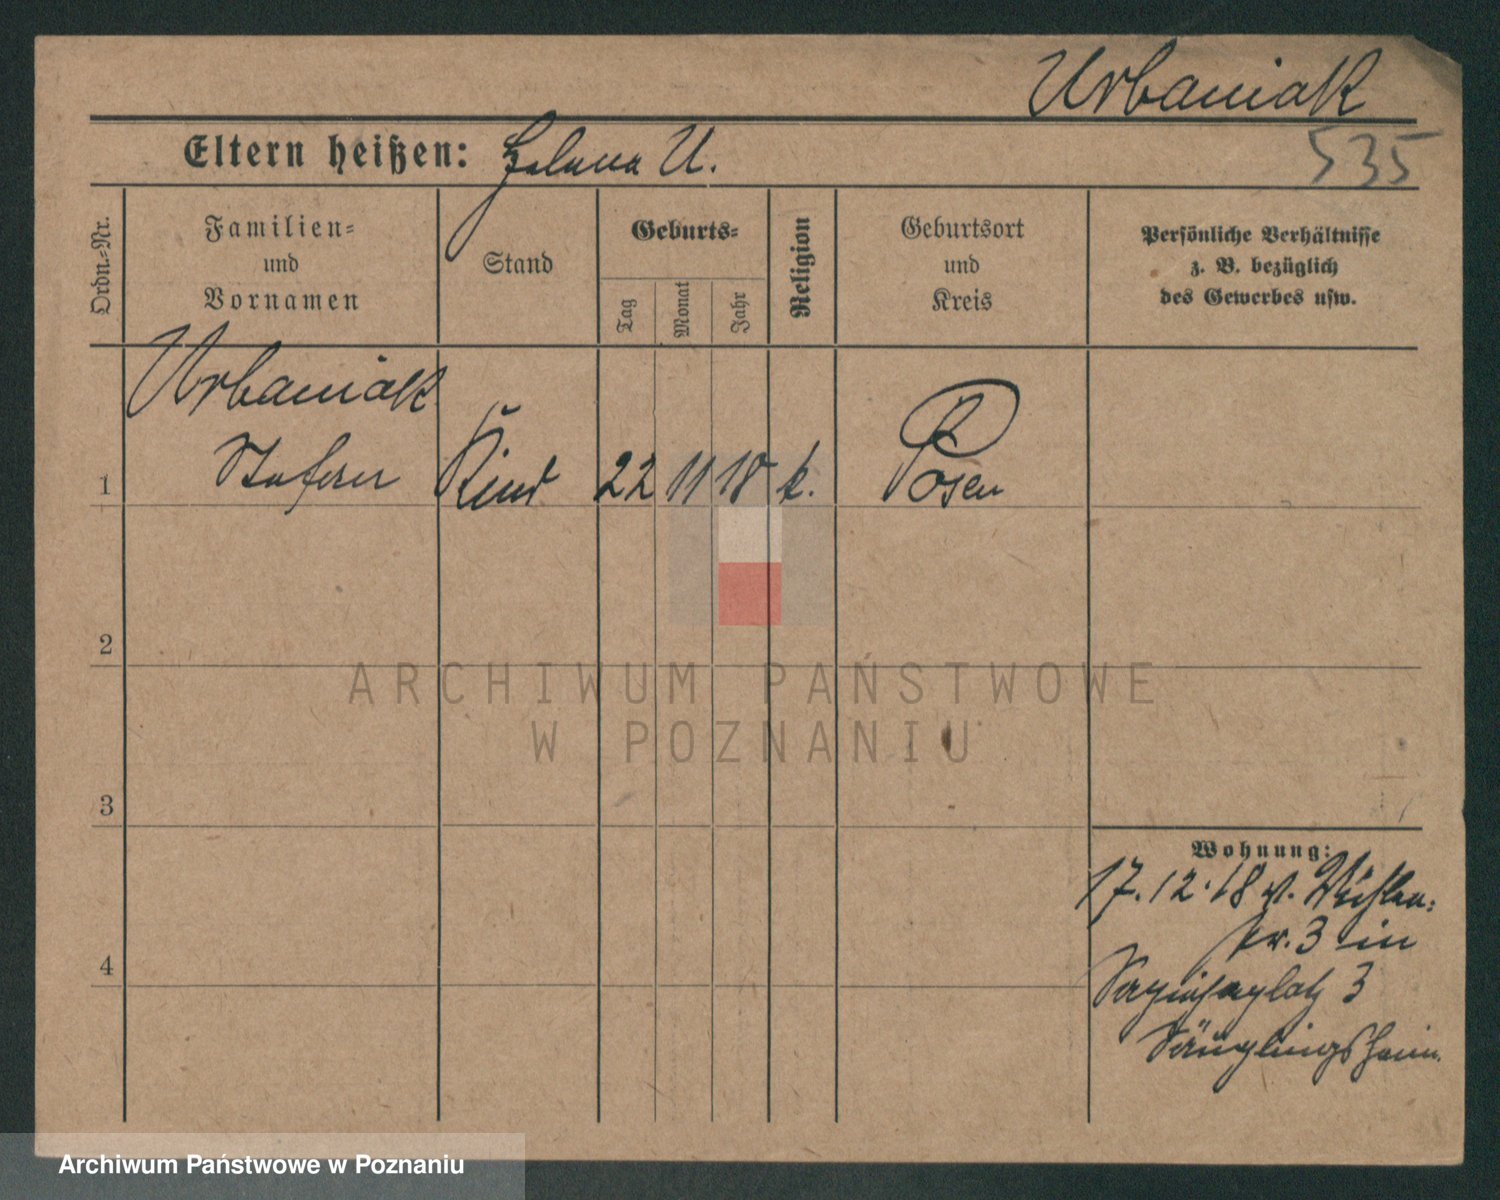 Urbaniak
535
Eltern heißen: Helena U.
Ordn.-Nr.
Familien-
und
Vornamen
Stand
Geburts-
Tag
Monat
Jahr
Religion
Geburtsort
und
Kreis
Persönliche Verhältnisse
z. B. bezüglich
des Gewerbes usw.
Urbaniak
1 Kind 22 11 18 k. Posen
2
3
4
ARCHIWUM PAŃSTWOWE
W POZNANIU
Wohnung:
17.12.18 v.
str. 3 in
Sapiehaplatz 3
Säuglingsheim.
Archiwum Państwowe w Poznaniu